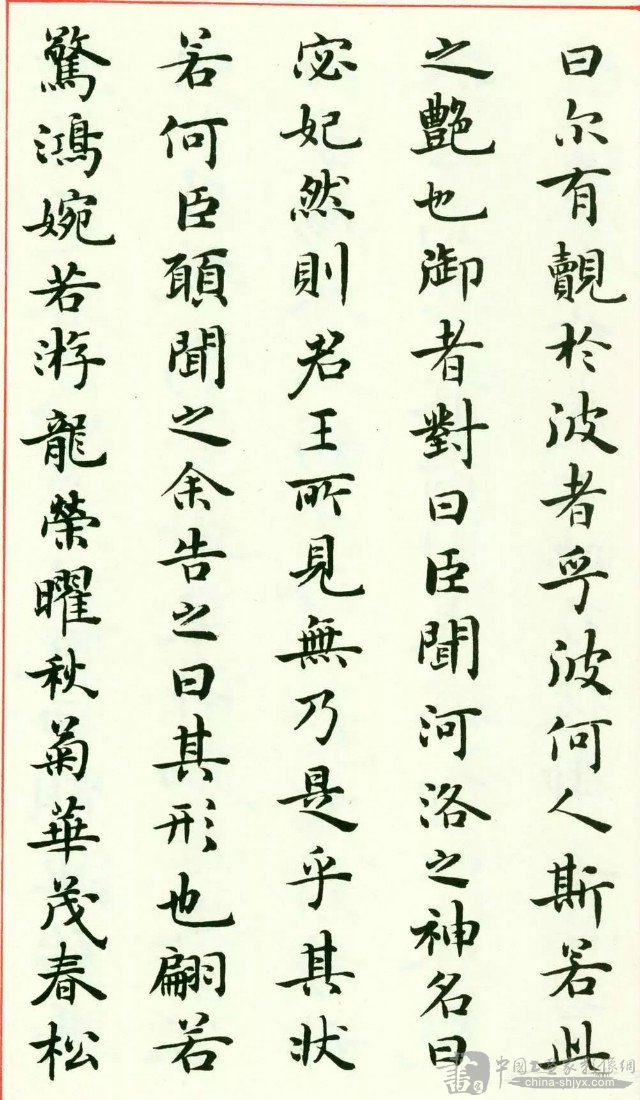 曰尔有覿於波者乎波何人斯若此
之艶也御者對曰臣聞河洛之神名曰
宓妃然則君王所見無乃是乎其状
若何臣願聞之余告之曰其形也翩若
驚鴻婉若游龍榮曜秋菊華茂春松
中國工艺家影像網
china-shjyx.com